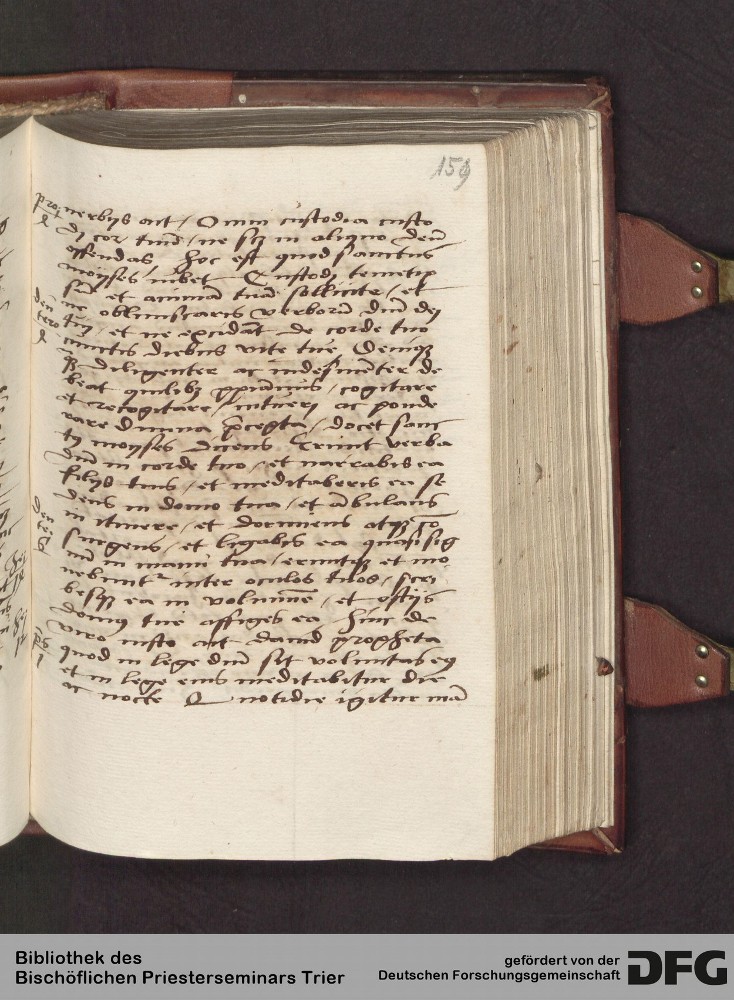 159
prouerbijs ait / Omni custodia custo
di cor tuū / ne scꝫ in aliquo deū
offendas Hoc est quod sanctus
moyses iubet Custodi temetip
sū et animā tuā sollicite / et
ne obliuiscaris verborū dnī dei
tui / et ne excidāt de corde tuo
cunctis diebus vite tue Deniqꝫ
diligenter ac indesinēter de
beat quilibꝫ xpianus / cogitare
et recogitare / intueri ac ponde
rare diuina p̄cepta / docet sanc
tꝰ moyses dicens Erunt verba
dnī in corde tuo / et narrabis ea
filijs tuis / et meditaberis ea se
dens in domo tua / et ābulans
in itinere / et dormiens atqꝫ cō
surgens / et ligabis ea quasi sig
nū in manu tua / eruntqꝫ et mo
uebunt inter oculos tuos / scri
besqꝫ ea in volumine / et ostijs
domꝰ tue affiges ea Hinc de
viro iusto ait dauid propheta
quod in lege dnī sit voluntas eiꝰ
et in lege eius meditabitur die
ac nocte Quotidie igitur mā
Bibliothek des
Bischöflichen Priesterseminars Trier
gefördert von der
Deutschen Forschungsgemeinschaft
DFG